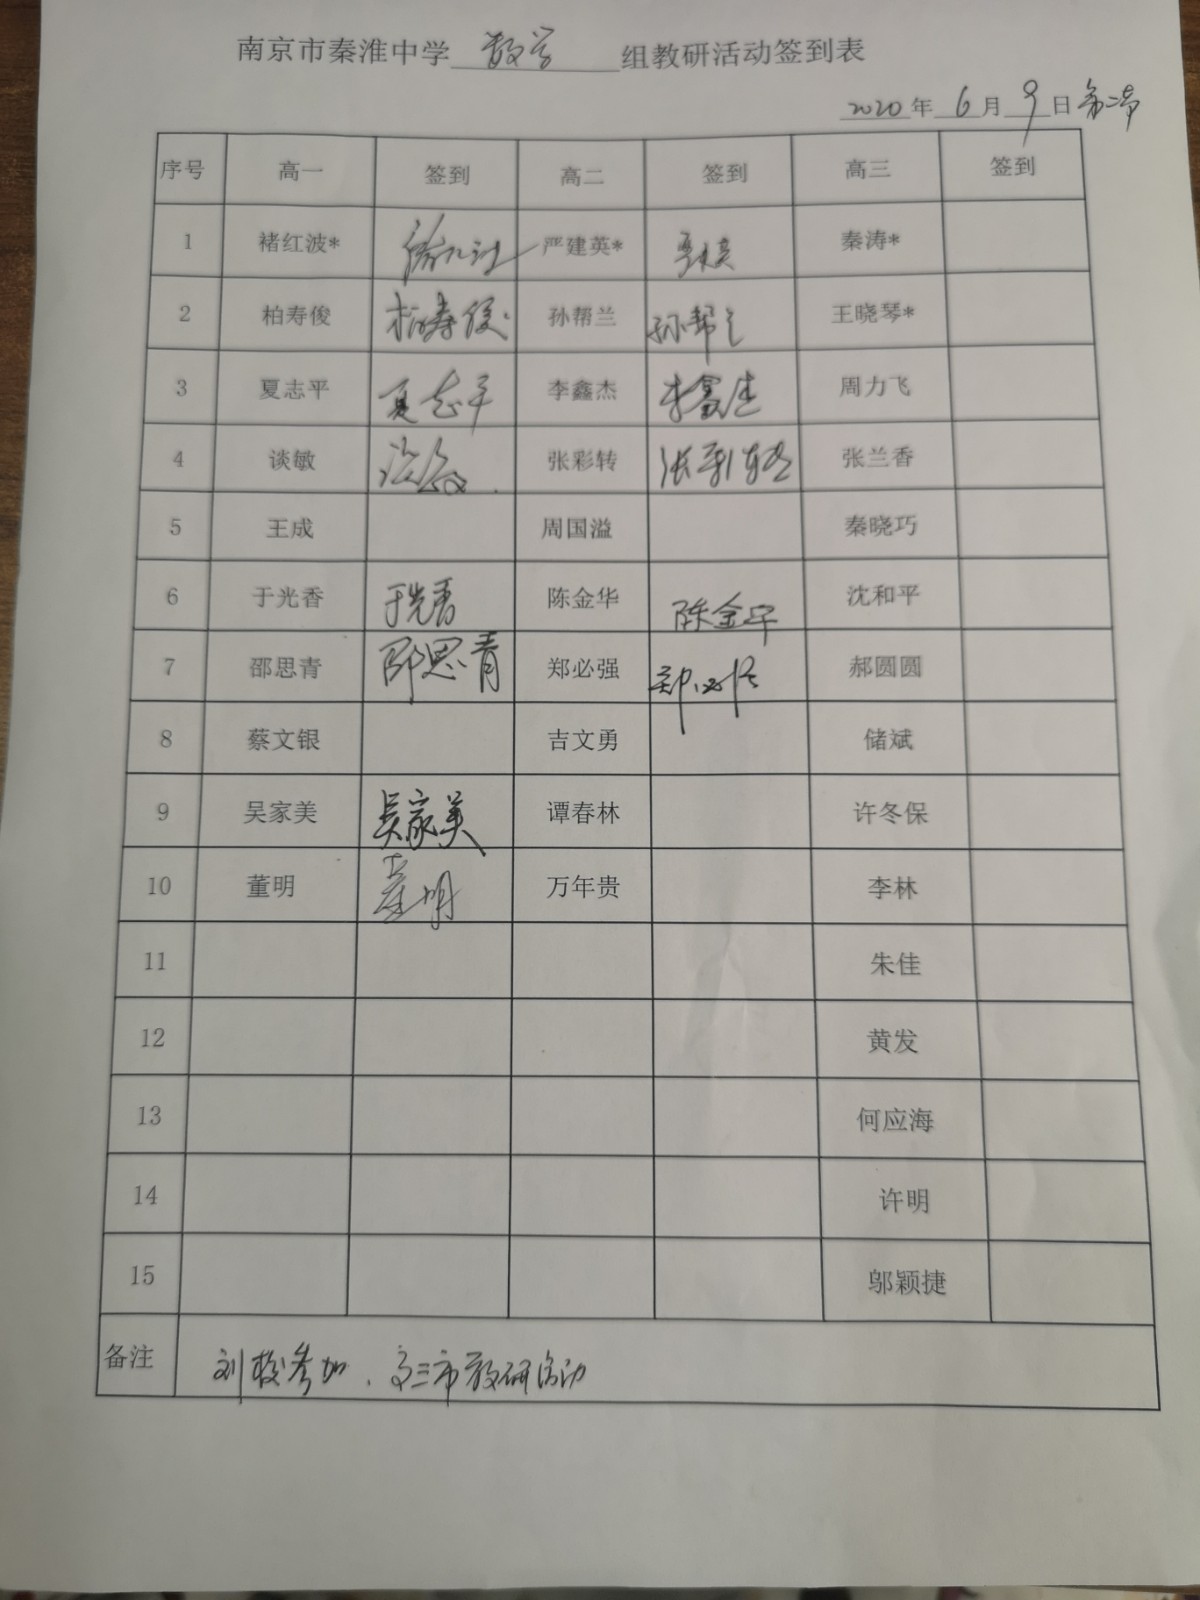 南京市秦淮中学 数学 组教研活动签到表
2020年 6月 9日 第二节
序号 高一 签到 高二 签到 高三 签到
1 褚红波* 严建英* 秦涛*
2 柏寿俊 柏寿俊 孙帮兰 孙帮兰 王晓琴*
3 夏志平 夏志平 李鑫杰 李鑫杰 周力飞
4 谈敏 谈敏 张彩转 张彩转 张兰香
5 王成 周国溢 秦晓巧
6 于光香 于光香 陈金华 陈金华 沈和平
7 邵思青 邵思青 郑必强 郑必强 郝圆圆
8 蔡文银 吉文勇 储斌
9 吴家美 吴家美 谭春林 许冬保
10 董明 董明 万年贵 李林
11 朱佳
12 黄发
13 何应海
14 许明
15 邬颖捷
备注 刘校参加、高三市教研活动